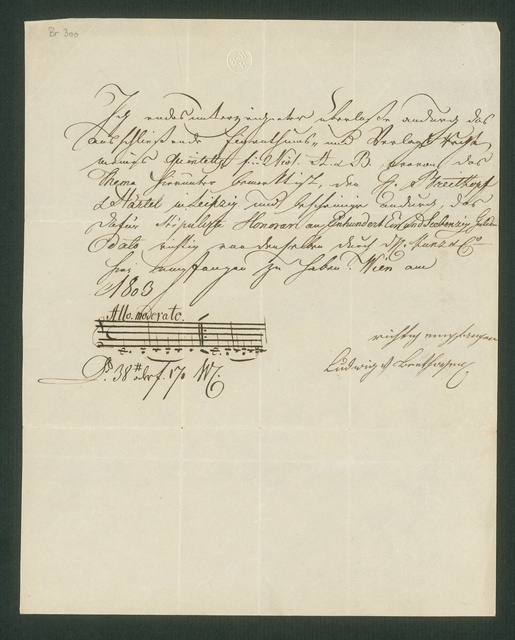 Br 300
Ich endesunterzeichneter überlasse andurch das
ausschließende Eigenthums- und Verlags Recht
meines Quintetts f. 2 Viol. 2 A. & B., wovon das
Thema hierunter bemerkt ist, den H. Breitkopf
& Härtel in Leipzig und bescheinige andurch, das
dafür stipulirte Honorar von Einhundert Ein und Siebenzig Gulden
dato richtig von denselben durch d. H. Kunz & Co
hier empfangen zu haben. Wien am
1803
Allo. moderato.
38 # 170
richtig empfangen
Ludwig v Beethoven